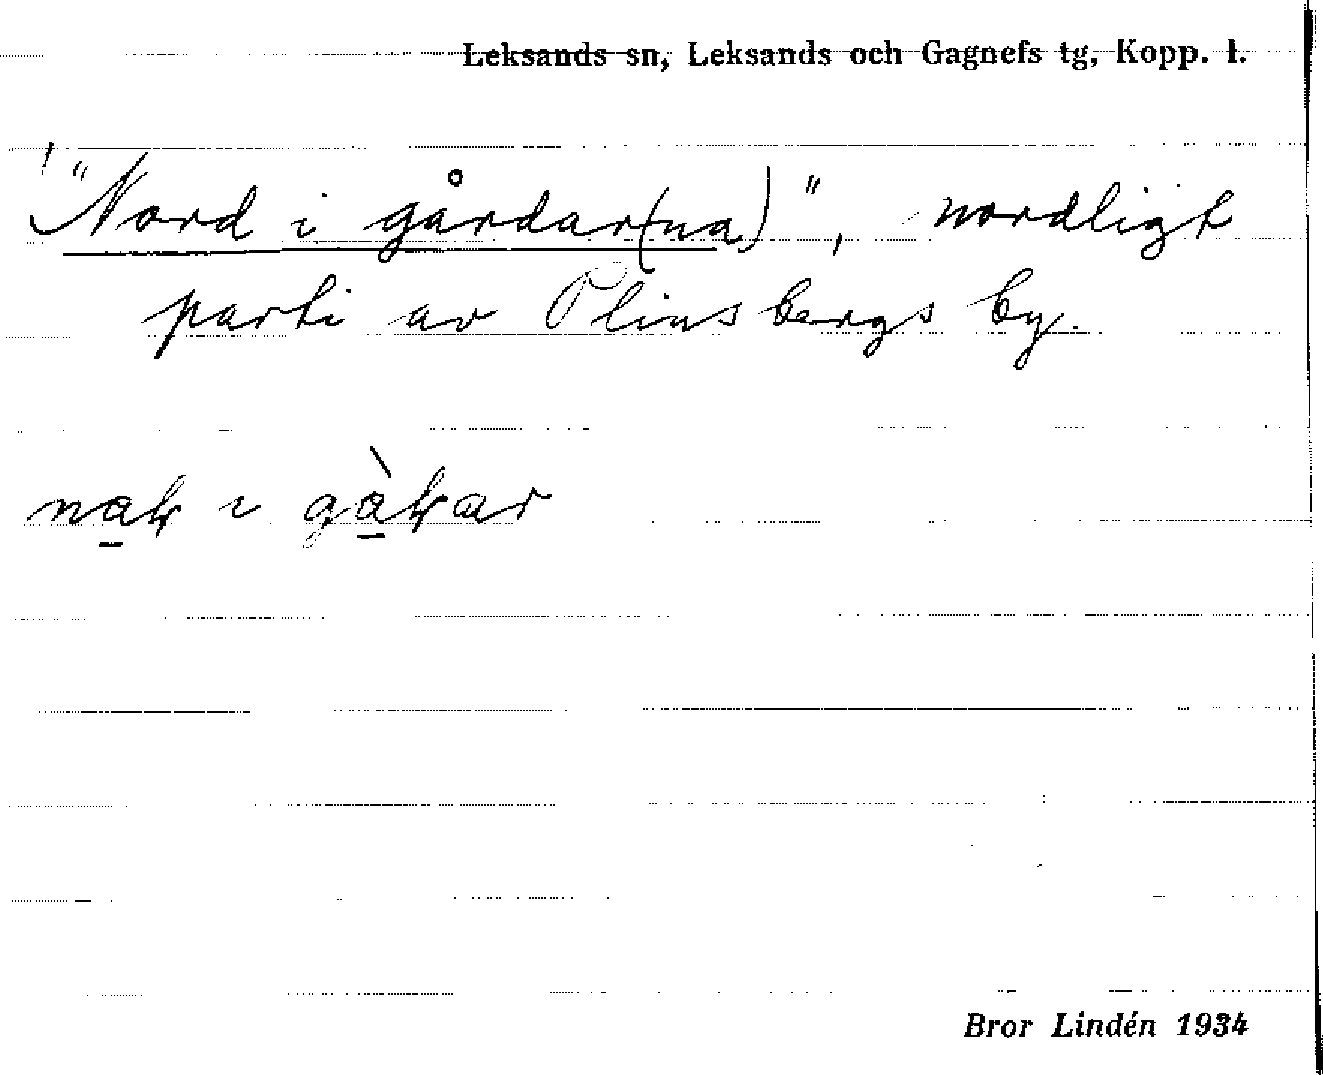 Leksands sn, Leksands och Gagnefs tg, Kopp. l.
! "Nord i gårdar(na)", nordligt
parti av Plinsbergs by.
i
Bror Lindén 1934